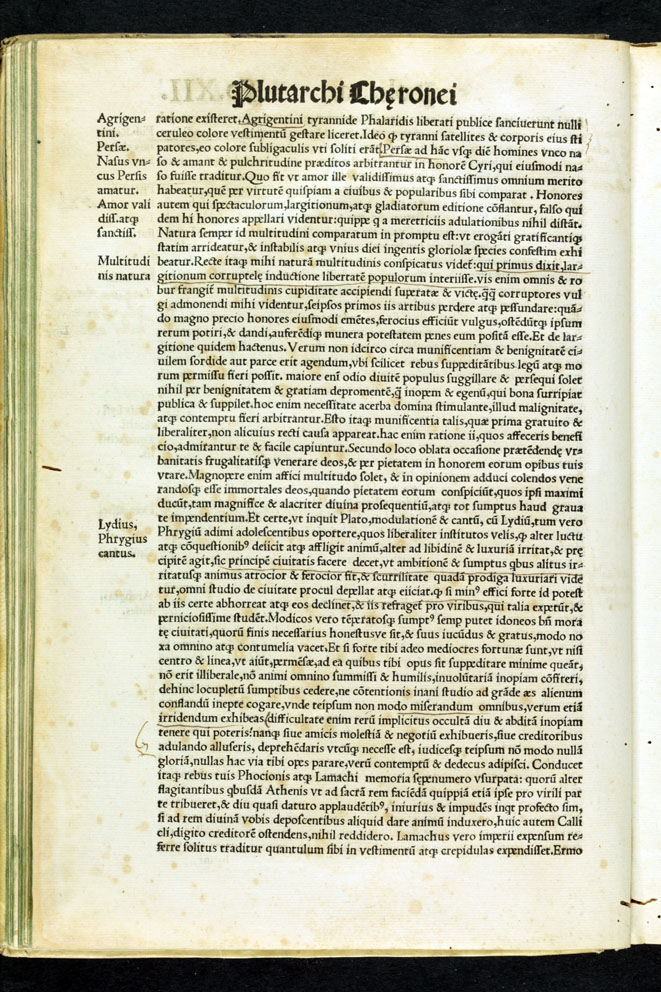 Plutarchi Chęronei
Agrigen=
tini.
Persæ.
Nasus vn=
cus Persis
amatur.
Amor vali
diss.atq3
sanctiss.
Multitudi
nis natura
Lydius,
Phrygius
cantus.
ratione existeret. Agrigentini tyrannide Phalaridis liberati publice sanciuerunt nulli
ceruleo colore vestimentū gestare liceret. Ideo ꝙ tyranni satellites & corporis eius sti
patores, eo colore subligaculis vti soliti erāt. Persæ ad hāc vsq3 diē homines vnco na
so & amant & pulchritudine præditos arbitrantur in honorē Cyri, qui eiusmodi na=
so fuisse traditur. Quo fit vt amor ille validissimus atq3 sanctissimus omnium merito
habeatur, quē per virtutē quispiam a ciuibus & popularibus sibi comparat. Honores
autem qui spectaculorum, largitionum, atq3 gladiatorum editione cōflantur, falso qui
dem hi honores appellari videntur: quippe q a meretriciis adulationibus nihil distāt.
Natura semper id multitudini comparatum in promptu est: vt erogāti gratificantiq3
statim arrideatur, & instabilis atq3 vnius diei ingentis gloriolæ species confestim exhi
beatur. Recte itaq3 mihi naturā multitudinis conspicatus videt: qui primus dixit, lar=
gitionum corruptelę inductione libertatē populorum interiisse. vis enim omnis & ro
bur frangit multitudinis cupiditate accipiendi superatæ & victę. q̄q̄ corruptores vul
gi admonendi mihi videntur, seipsos primos iis artibus perdere atq3 pessundare: quā=
do magno precio honores eiusmodi emētes, ferocius efficiūt vulgus, ostēdūtq3 ipsum
rerum potiri, & dandi, auferēdiq3 munera potestatem penes eum positā esse. Et de lar=
gitione quidem hactenus. Verum non idcirco circa munificentiam & benignitatē ci=
uilem sordide aut parce erit agendum, vbi scilicet rebus suppeditātibus legū atq3 mo
rum permissu fieri possit. maiore enī odio diuitē populus suggillare & persequi solet
nihil per benignitatem & gratiam depromentē, q̄ inopem & egenū, qui bona surripiat
publica & suppilet. hoc enim necessitate acerba domina stimulante, illud malignitate,
atq3 contemptu fieri arbitrantur. Esto itaq3 munificentia talis, quæ prima gratuito &
liberaliter, non alicuius recti causa appareat. hac enim ratione ii, quos affeceris benefi
cio, admirantur te & facile capiuntur. Secundo loco oblata occasione prætēdendę vr=
banitatis frugalitatisq3 venerare deos, & per pietatem in honorem eorum opibus tuis
vtare. Magnopere enim affici multitudo solet, & in opinionem adduci colendos vene
randosq3 esse immortales deos, quando pietatem eorum conspiciūt, quos ipsi maximi
ducūt, tam magnifice & alacriter diuina prosequentiū, atq3 tot sumptus haud graua
te impendentium. Et certe, vt inquit Plato, modulationē & cantū, cū Lydiū, tum vero
Phrygiū adimi adolescentibus oportere, quos liberaliter institutos velis, ꝙ alter luctu
atq3 cōquestionibꝰ deiicit atq3 affligit animū, alter ad libidinē & luxuriā irritat, & prę
cipitē agit, sic principē ciuitatis facere decet, vt ambitionē & sumptus qbus alitus ir=
ritatusq3 animus atrocior & ferocior fit, & scurrilitate quadā prodiga luxuriari vide
tur, omni studio de ciuitate procul depellat atq3 eiiciat. ꝙ si minꝰ effici forte id potest
ab iis certe abhorreat atq3 eos declinet, & iis refraget pro viribus, qui talia expetūt, &
perniciosissime studēt. Modicos vero tēperatosq3 sumptꝰ semp putet idoneos bn̄ mora
tę ciuitati, quorū finis necessarius honestusve sit, & suus iucūdus & gratus, modo no
xa omnino atq3 contumelia vacet. Et si forte tibi adeo mediocres fortunæ sunt, vt nisi
centro & linea, vt aiūt, permēsæ, ad ea quibus tibi opus sit suppeditare minime queāt,
nō erit illiberale, nō animi omnino summissi & humilis, inuolūtariā inopiam cōfiteri,
dehinc locupletū sumptibus cedere, ne cōtentionis inani studio ad grāde æs alienum
conflandū inepte cogare, vnde teipsum non modo miserandum omnibus, verum etiā
irridendum exhibeas, (difficultate enim rerū implicitus occultā diu & abditā inopiam
tenere qui poteris? nanq3 siue amicis molestiā & negotiū exhibueris, siue creditoribus
adulando alluseris, deprehēdaris vtcūq3 necesse est, iudicesq3 teipsum nō modo nullā
gloriā, nullas hac via tibi opes parare, verū contemptū & dedecus adipisci. Conducet
itaq3 rebus tuis Phocionis atq3 Lamachi memoria sępenumero vsurpata: quorū alter
flagitantibus qbusdā Athenis vt ad sacrā rem faciēdā quippiā etiā ipse pro virili par
te tribueret, & diu quasi daturo applaudētibꝰ, iniurius & impudēs inqt profecto sim,
si ad rem diuinā vobis deposcentibus aliquid dare animū induxero, huic autem Calli
cli, digito creditorē ostendens, nihil reddidero. Lamachus vero imperii expensum re=
ferre solitus traditur quantulum sibi in vestimentū atq3 crepidulas expendisset. Ermo